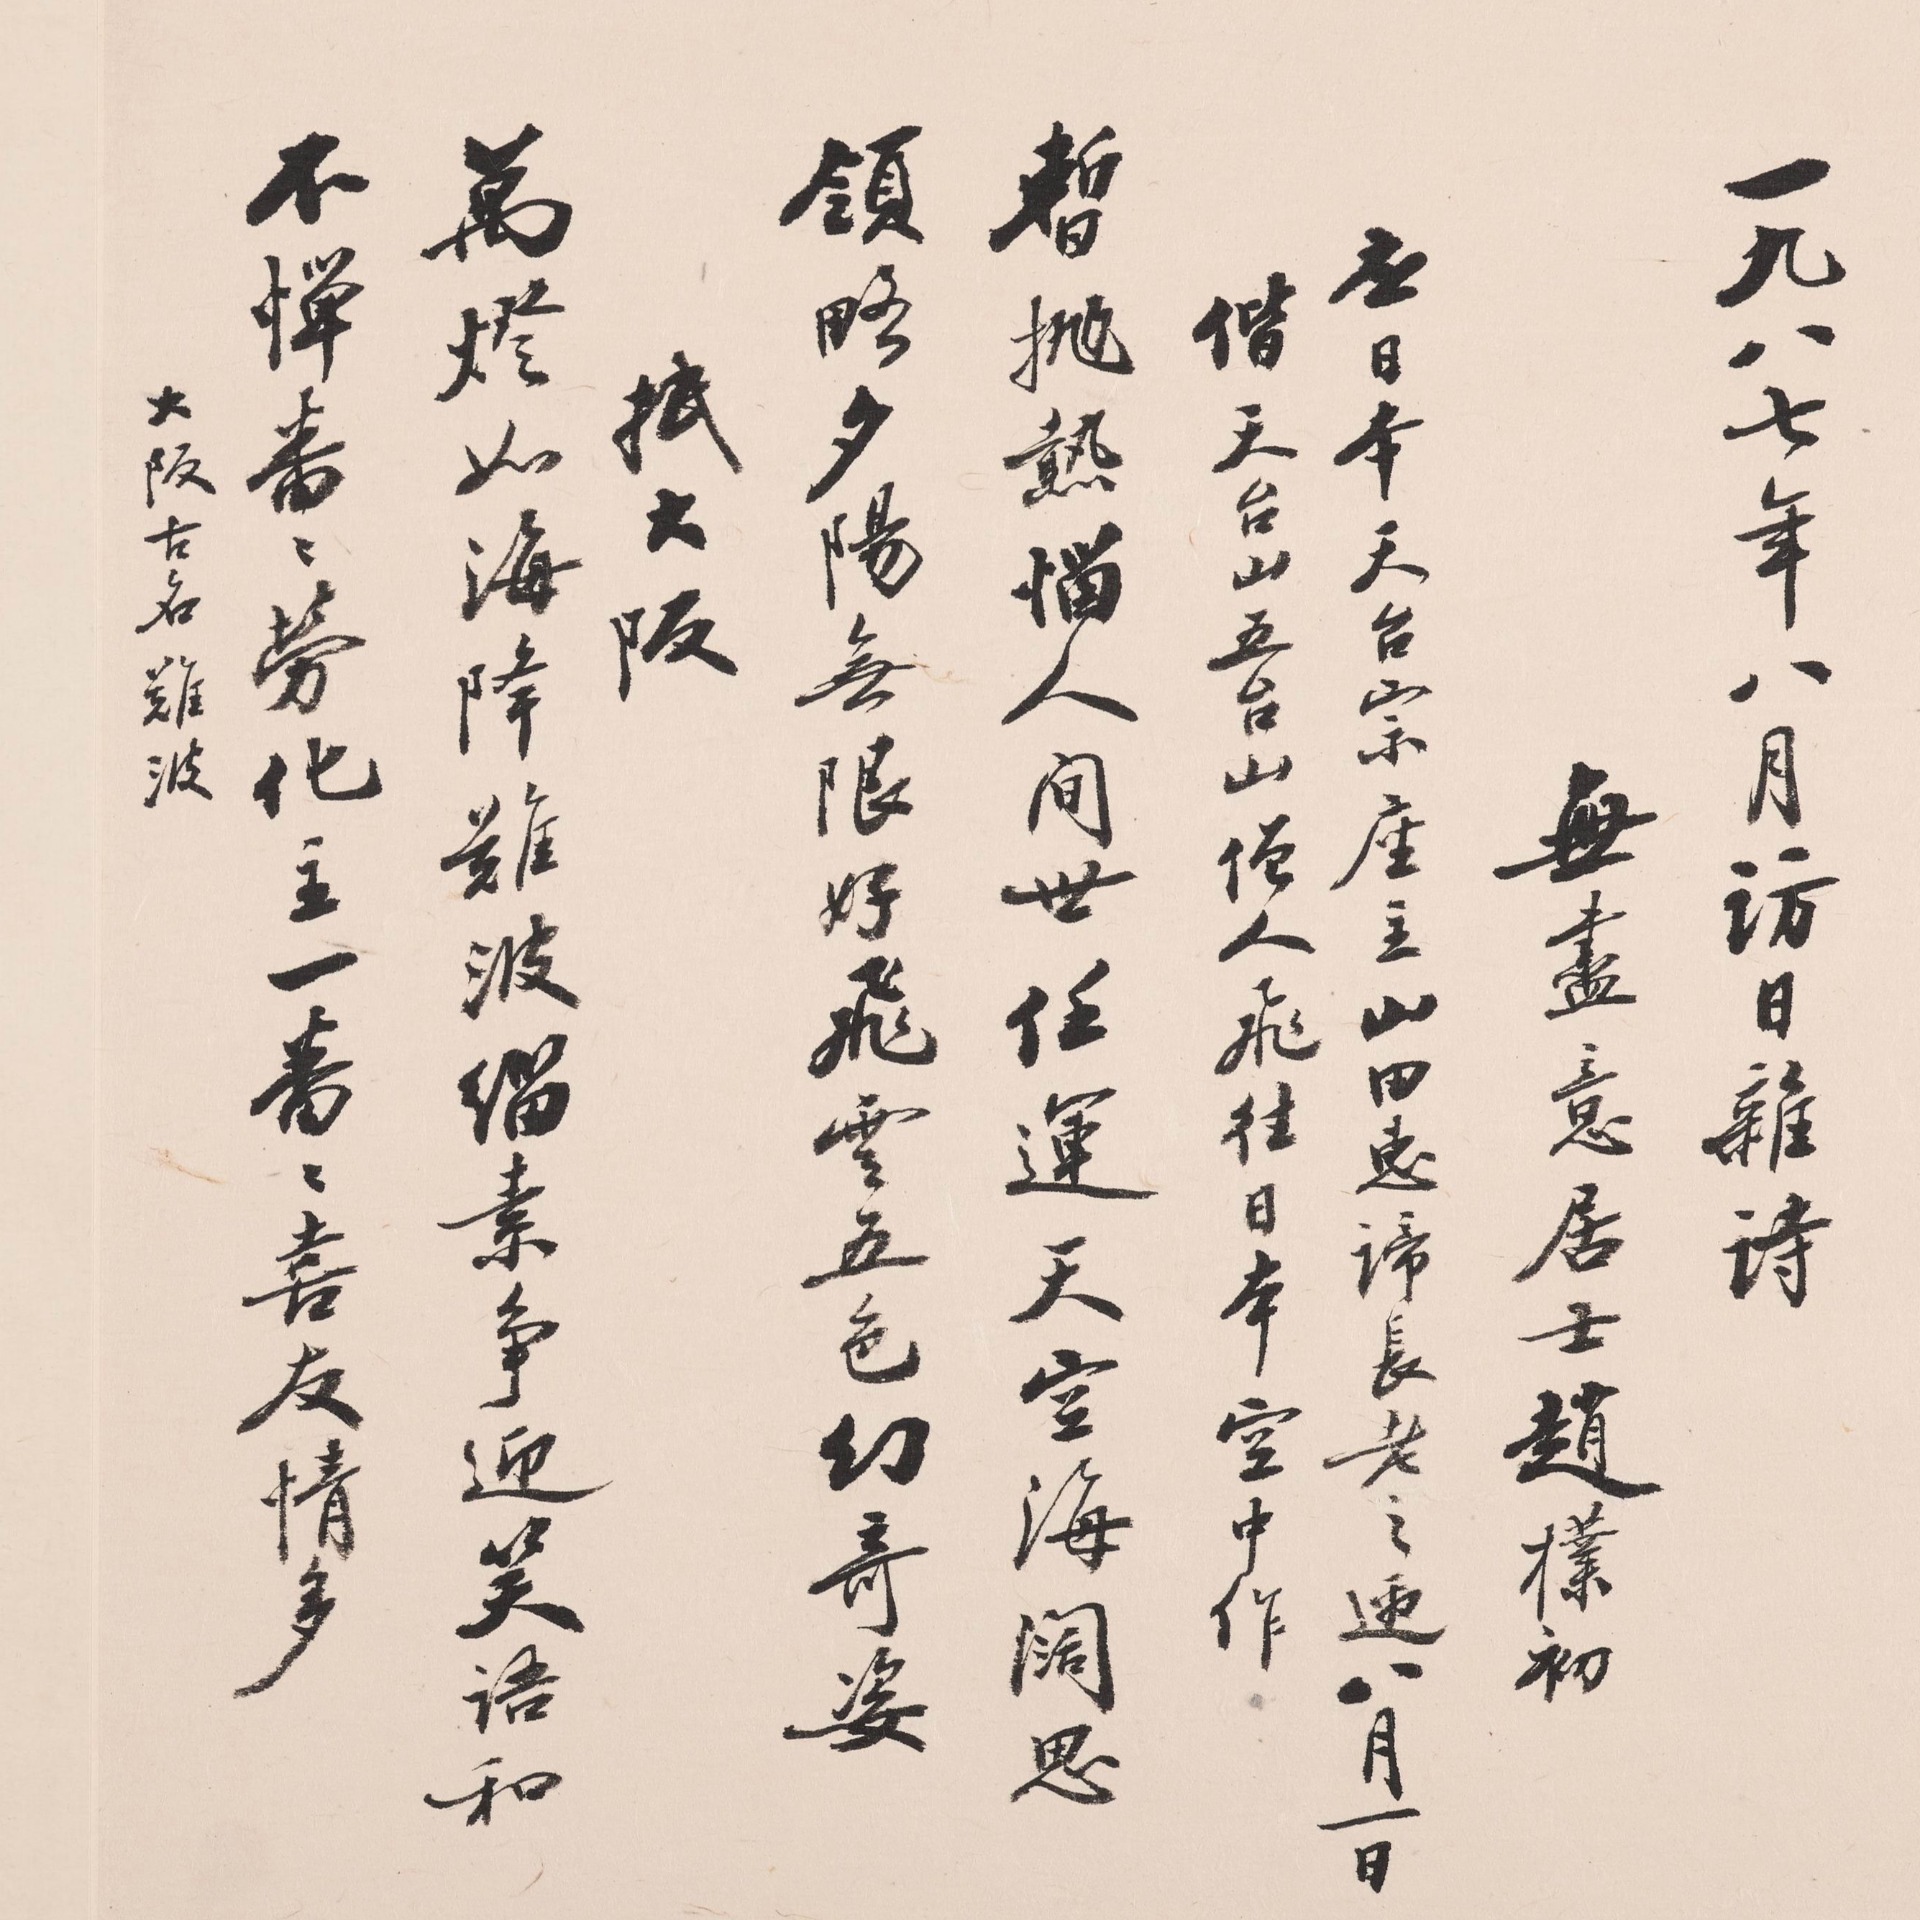 一九八七年八月訪日雜诗
無盡意居士趙樸初
应日本天台宗座主山田惠諦長老之邀八月一日
偕天台山五台山僧人飛往日本空中作
暫抛熱惱人间世任運天空海阔思
領略夕陽無限好飛雲五色幻奇姿
抵大阪
萬燈如海降難波缁素争迎笑语和
不憚番〻勞化主一番〻喜友情多
大阪古名難波